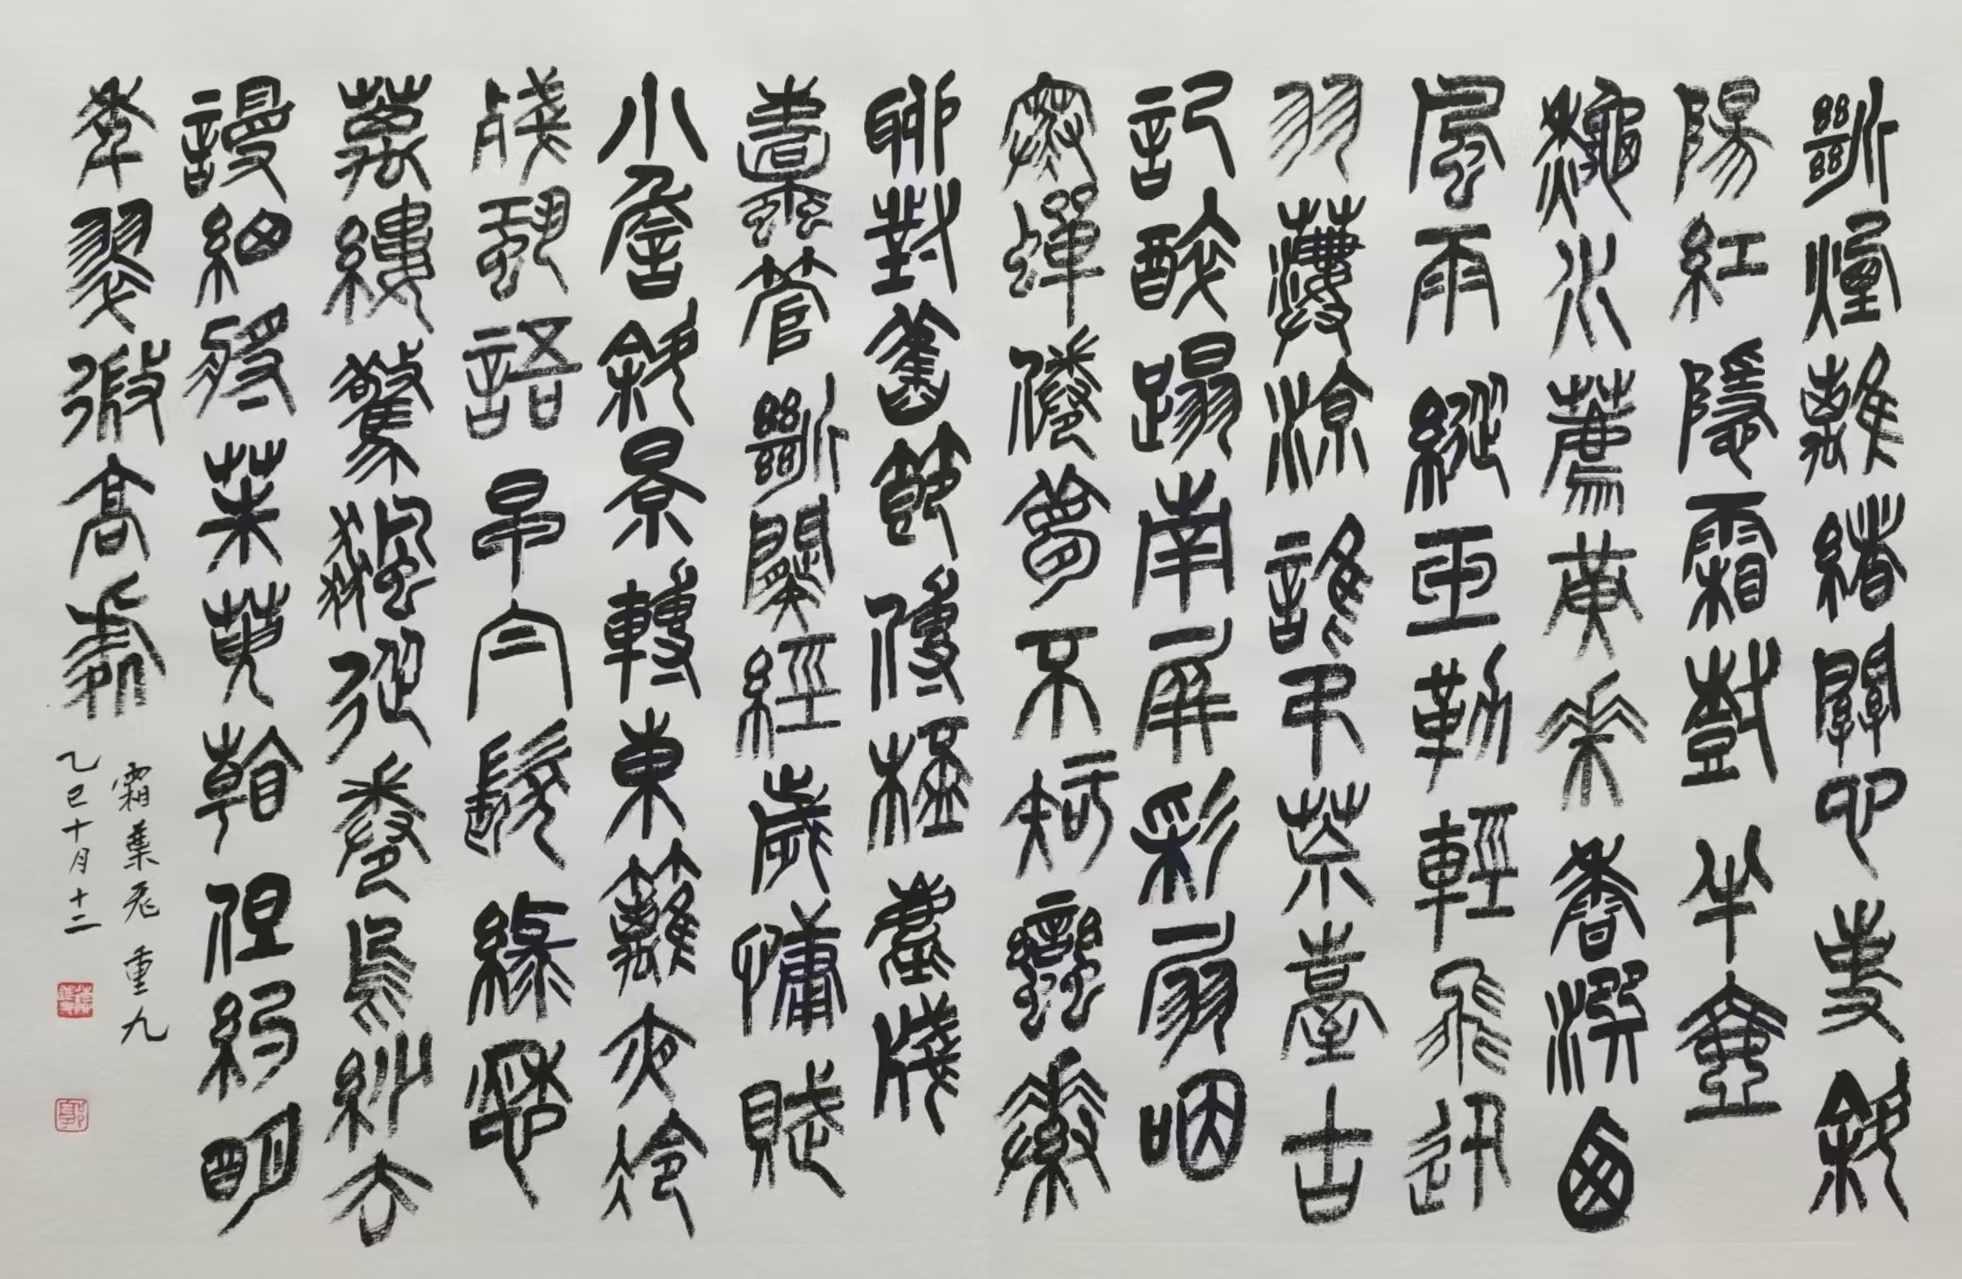 斷煙離緒關心事斜
陽紅隱霜樹半壺
秋水薦黃花香噀西
風雨縱玉勒輕飛迅
羽淒涼誰弔荒臺古
記醉蹋南屏彩扇咽
寒蟬倦夢不知蠻素
聊對舊節傳桮塵牋
蠹管斷闋經歲慵賦
小蟾斜景轉東籬夜冷
殘蛩語早白髮緣愁
萬縷驚飆從卷烏紗去
謾細將茱萸看但約明
年翠微高處
霜葉飛 重九
乙巳十月十二